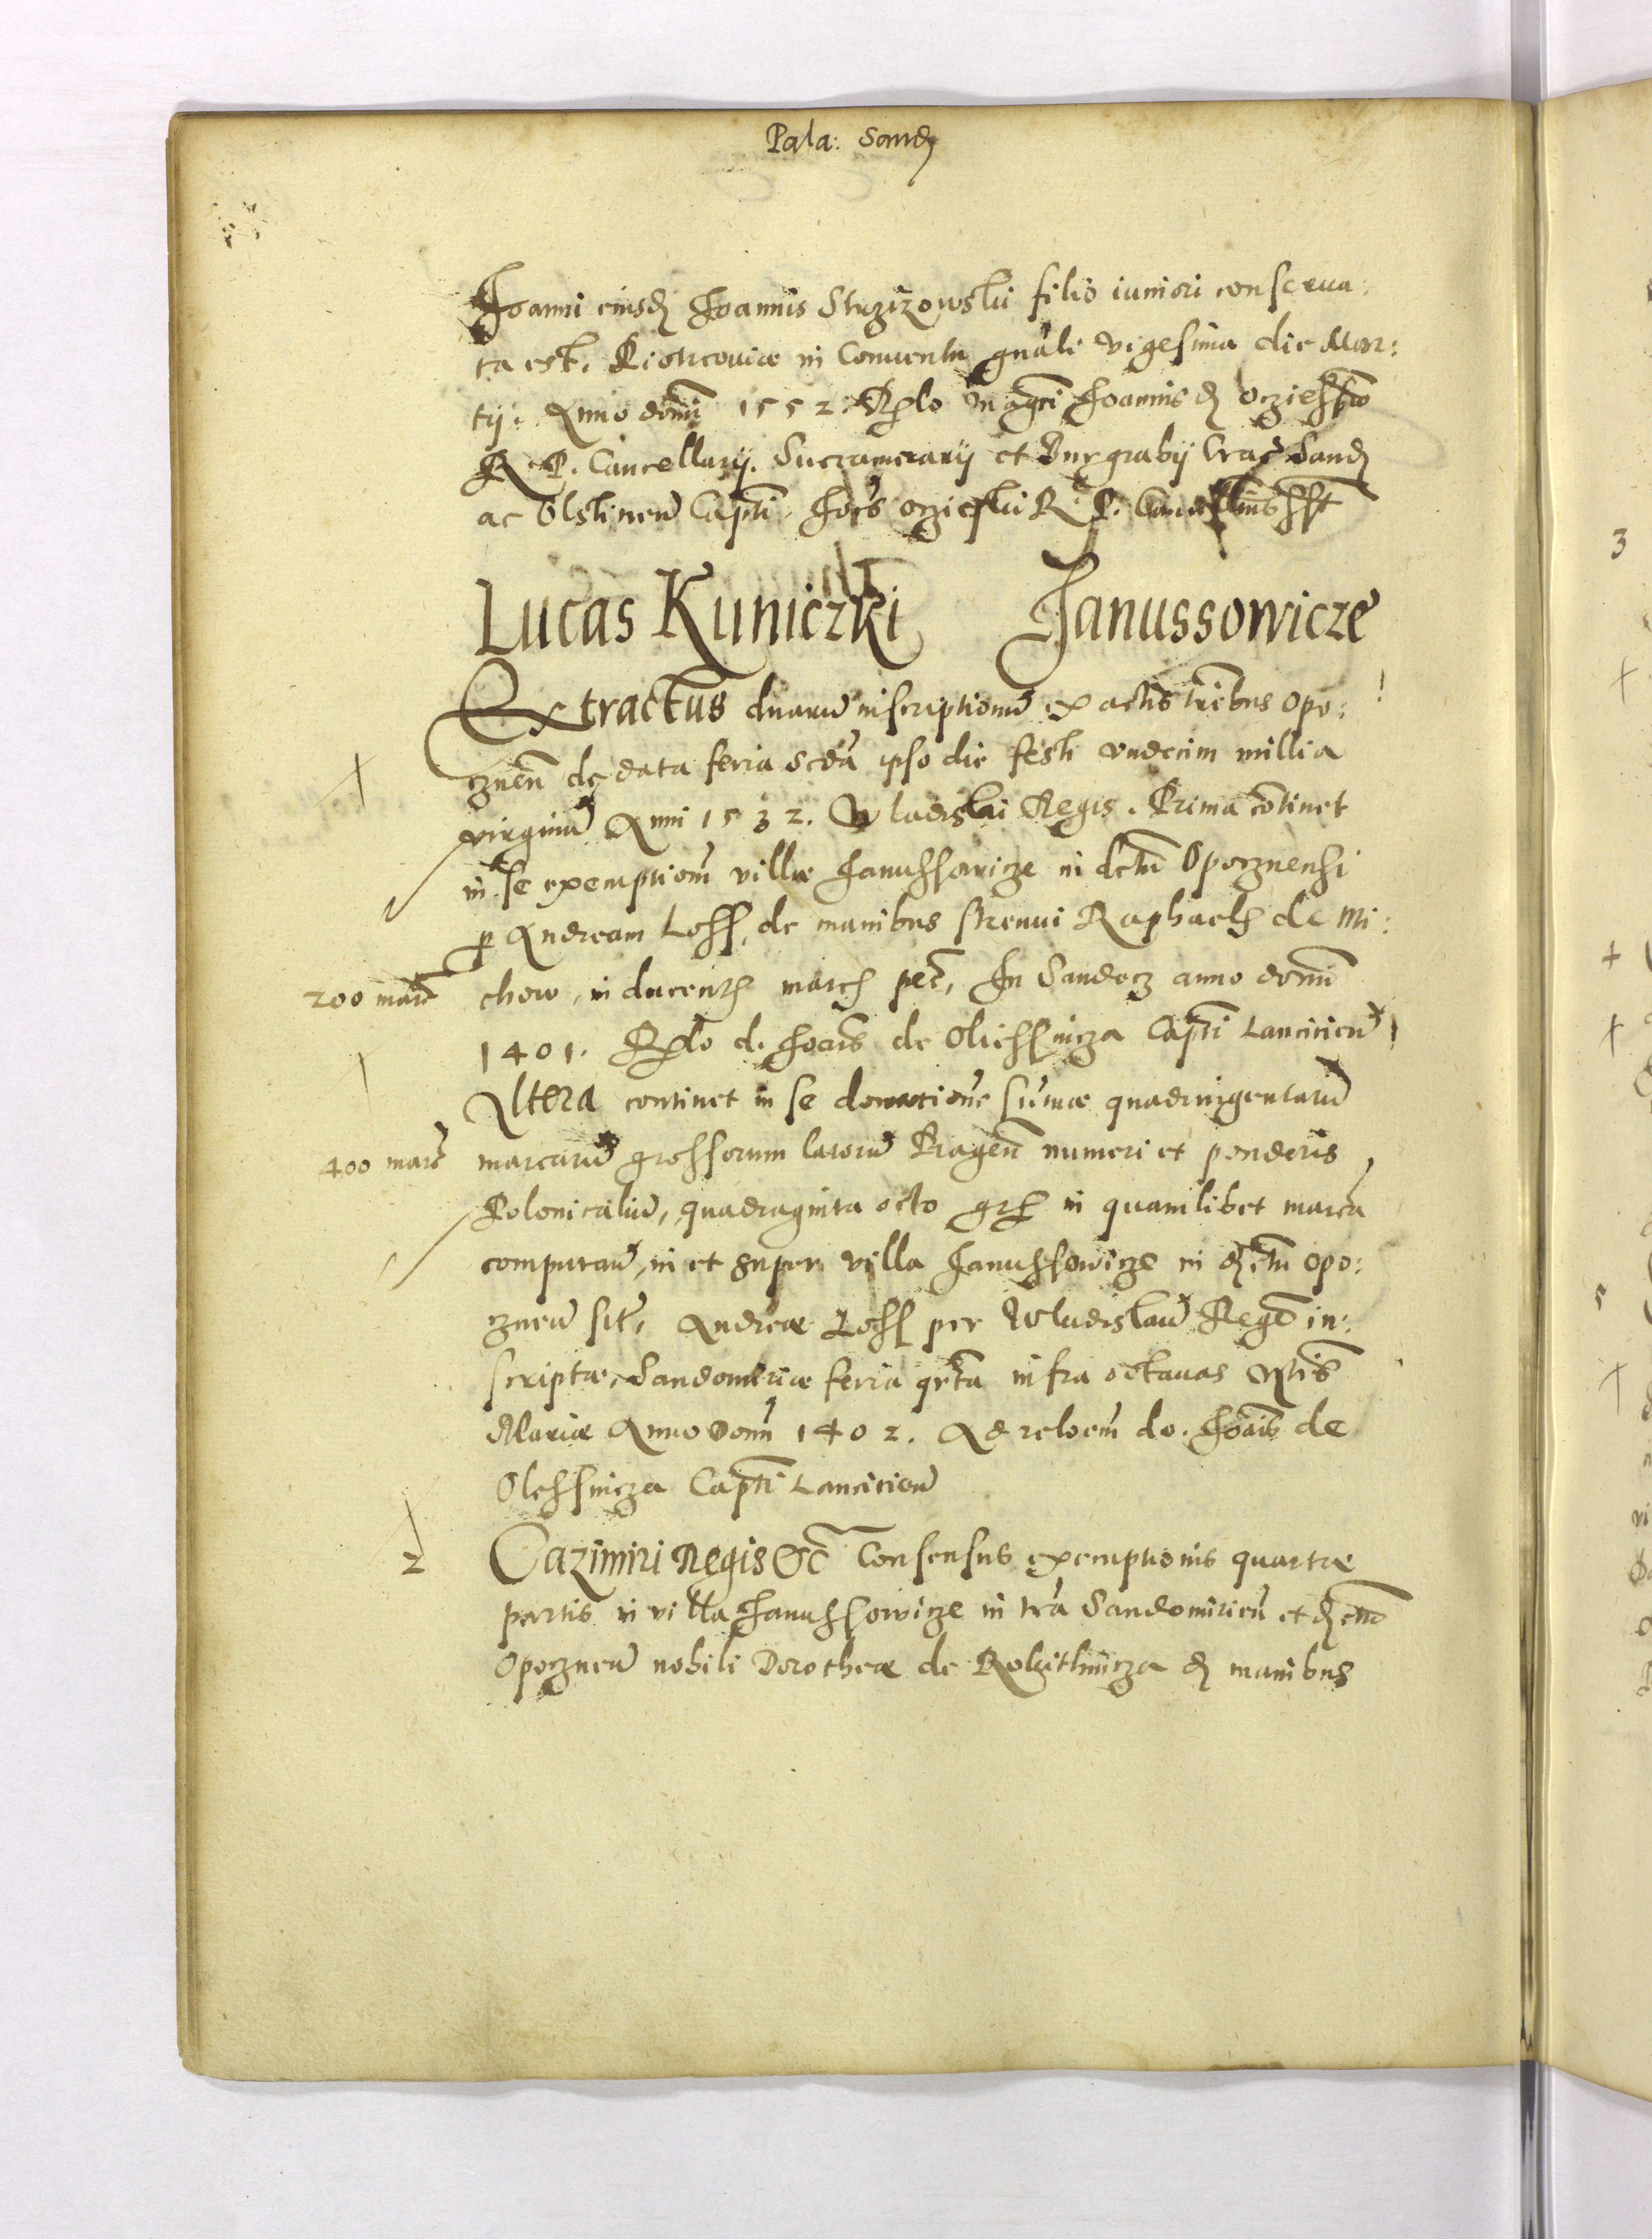 Pala: Sand
Joanni eiusd Joannis Strzizowski filio iuniori conserua:
ta est. Piotrcouiæ in Conuentu gnãli vigesima die Mar:
tij. Anno domi 1552. Rlo Magci Joannis d Oczieskio
R. P. Cancellarij. Succamerarij et Burgrabij Crac Sand
ac Olstinen Capti. Joes Oczieski R. P. Cancellarius sst
Lucas Kuniczki Janussowicze
Extractus duaru inscriptionu ex actis trebus Opo:
cznen de data feria scda ipso die festi vndecim millia
virginu Anni 1532. Wladislai Regis. Prima cotinet
in se exemptiom villæ Janussowicze in dctu Opocznensi
p Andream Loss, de manibus strenui Raphaelis de Mi:
200 marc chow, in ducentis marcis pec, In Sandecz anno domi
1401. Rlo d. Joais de Oliessnicza Capti Lancicien
Altera continet in se donatione sumæ quadringentaru
400 marc marcaru grossorum latoru Pragen numeri et ponderis
Polonicaliu, quadraginta octo grs in quamlibet marca
computan, in et super villa Janussowicze in dctu Opo:
cznen sit, Andreæ Loss per Wladislau Rege in:
scriptæ, Sandomiriæ feria qrta infra octauas
Mariæ Anno domi 1402. Ad reloem do. Joais de
Olessnicza Capti Lancicien
2 Cazimiri Regis &c Consensus exemptionis quartæ
partis in villa Janussowicze in tra Sandomirien et dctu
Opocznen nobili Dorotheæ de d manibus